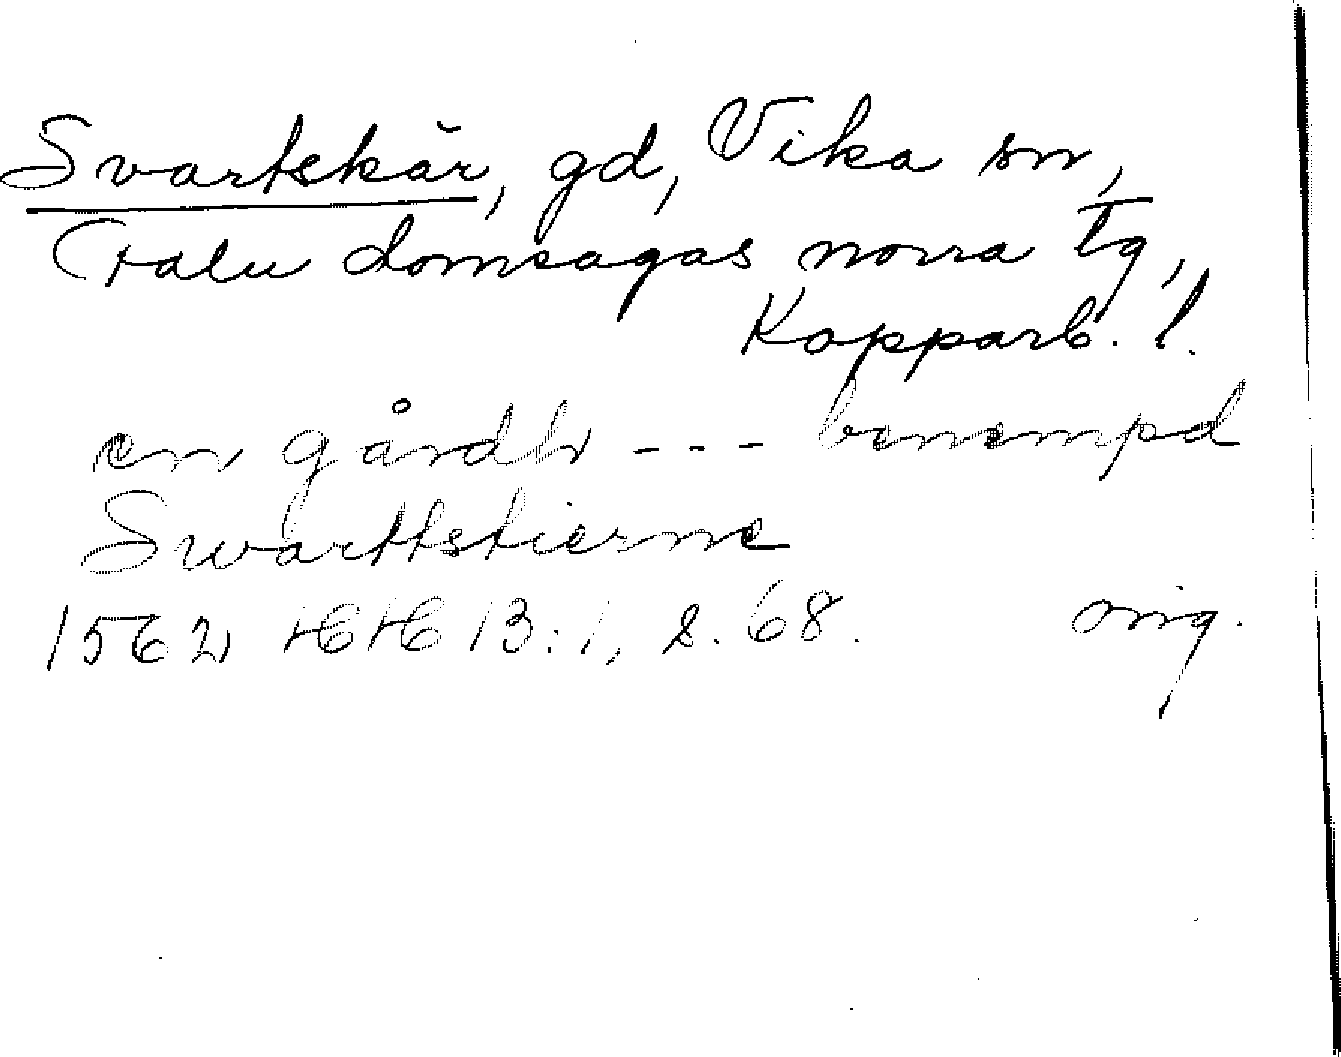 Svartskär, gd, Vika sn,
Falu domsagas norra tg,
Kopparb. l.
en gårdh --- benempd
Swarttstierne
1562 HH 13:1, s. 68. orig.